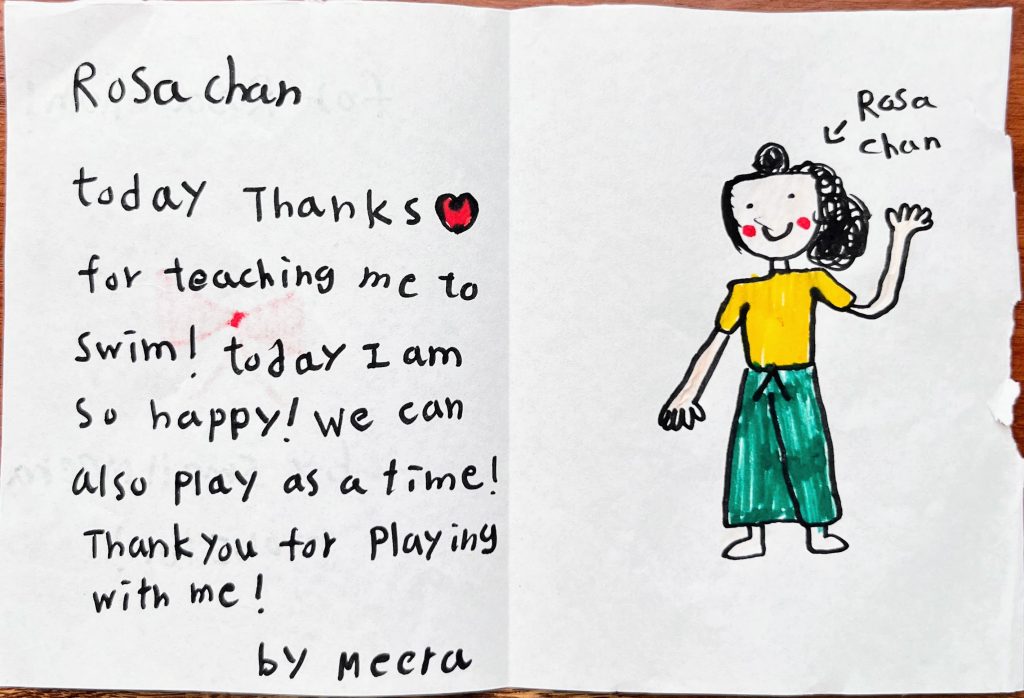 Rosa chan
today Thanks
for teaching me to
swim! today I am
so happy! we can
also play as a time!
Thank you for Playing
with me!
by Meera
Rosa
chan